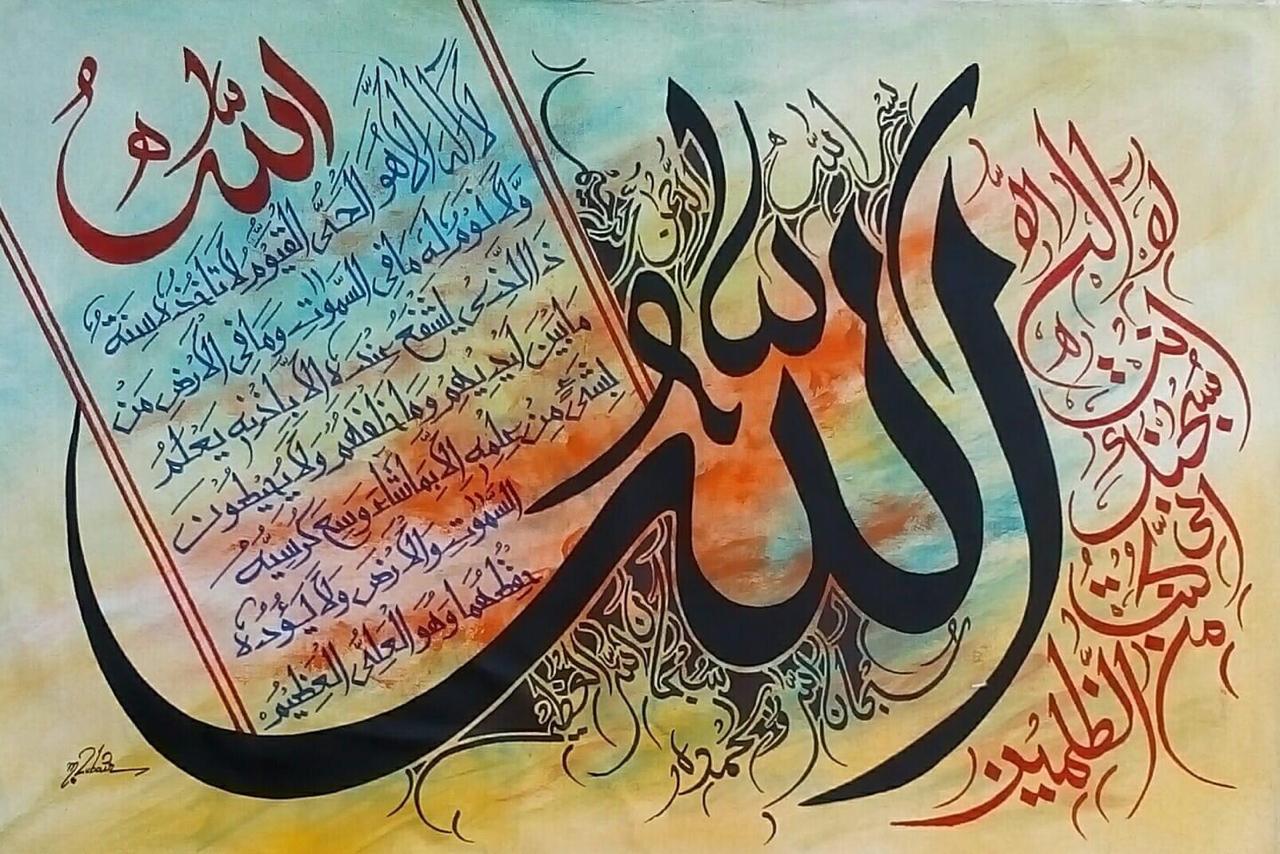 الله
لا اله الا هو الحي القيوم لا تاخذه سنة
ولا نوم له ما في السموت وما في الارض من
ذا الذي يشفع عنده الا باذنه يعلم
ما بين ايديهم وما خلفهم ولا يحيطون
بشيء من علمه الا بما شاء وسع كرسيه
السموت والارض ولا يؤده
حفظهما وهو العلي العظيم
الله
بسم الله الرحمن
سبحان الله وبحمده
سبحان الله العظيم
لا اله الا
انت
سبحنك
اني كنت
من
الظلمين
M. Zubair